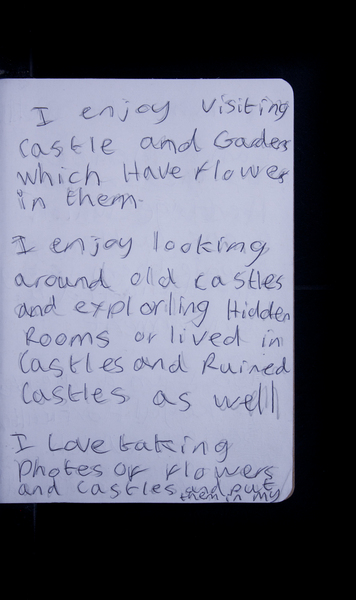 I enjoy visiting
castle and Garden
which Have flower
in them.
I enjoy looking
around old castles
and explorling Hidden
Rooms or lived in
Castles and Ruined
Castles as well
I Love taking
Photes of flowers
and castles and put
them in my